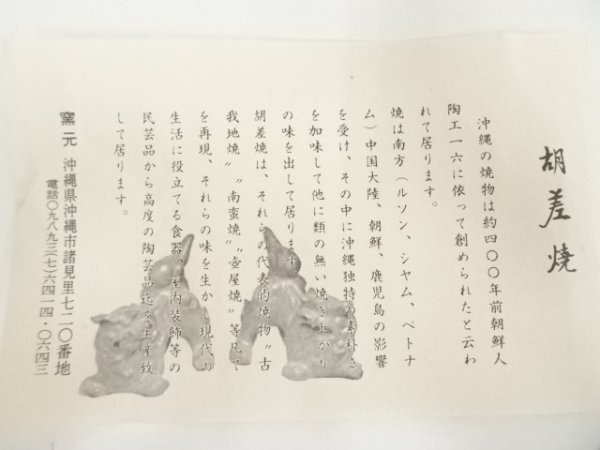 胡差焼
沖縄の焼物は約四〇〇年前朝鮮人
陶工一六に依って創められたと云わ
れて居ります。
焼は南方（ルソン、シヤム、ベトナ
ム）中国大陸、朝鮮、鹿児島の影響
を受け、その中に沖縄独特の素朴さ
を加味して他に類の無い焼き上がり
の味を出して居ります
胡差焼は、それらの代表的焼物〝古
我地焼〟〝南蛮焼〟〝壺屋焼〟等凡て
を再現、それらの味を生かし現代の
生活に役立てる食器、室内装飾等の
民芸品から高度の陶芸品迄を生産致
して居ります。
窯元 沖縄県沖縄市諸見里七二〇番地
電話〇九八九三(七)六四一四・〇六四三